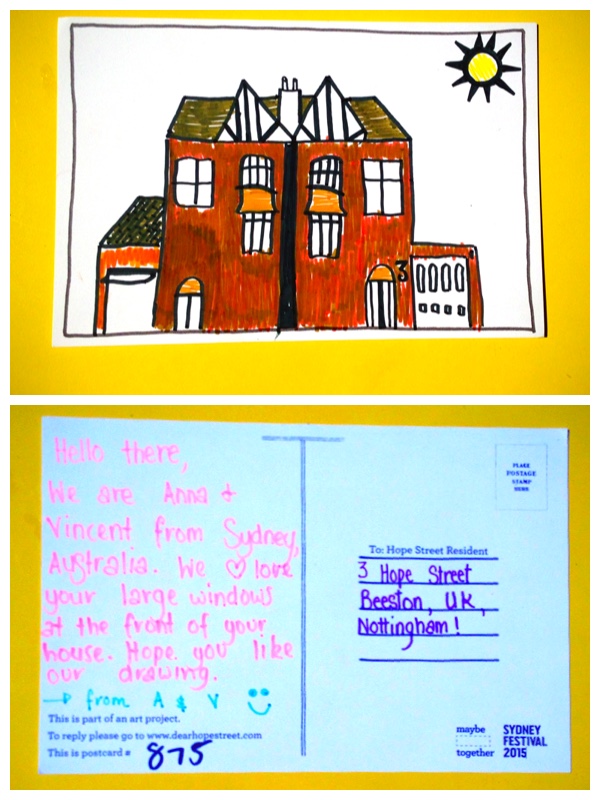 3
Hello there,
We are Anna &
Vincent from Sydney,
Australia. We ♡ love
your large windows
at the front of your
house. Hope you like
our drawing.
→ from A & V
This is part of an art project.
To reply please go to www.dearhopestreet.com
This is postcard # 875
PLACE
POSTAGE
STAMP
HERE
To: Hope Street Resident
3 Hope Street
Beeston, UK,
Nottingham!
maybe
together
SYDNEY
FESTIVAL
2015